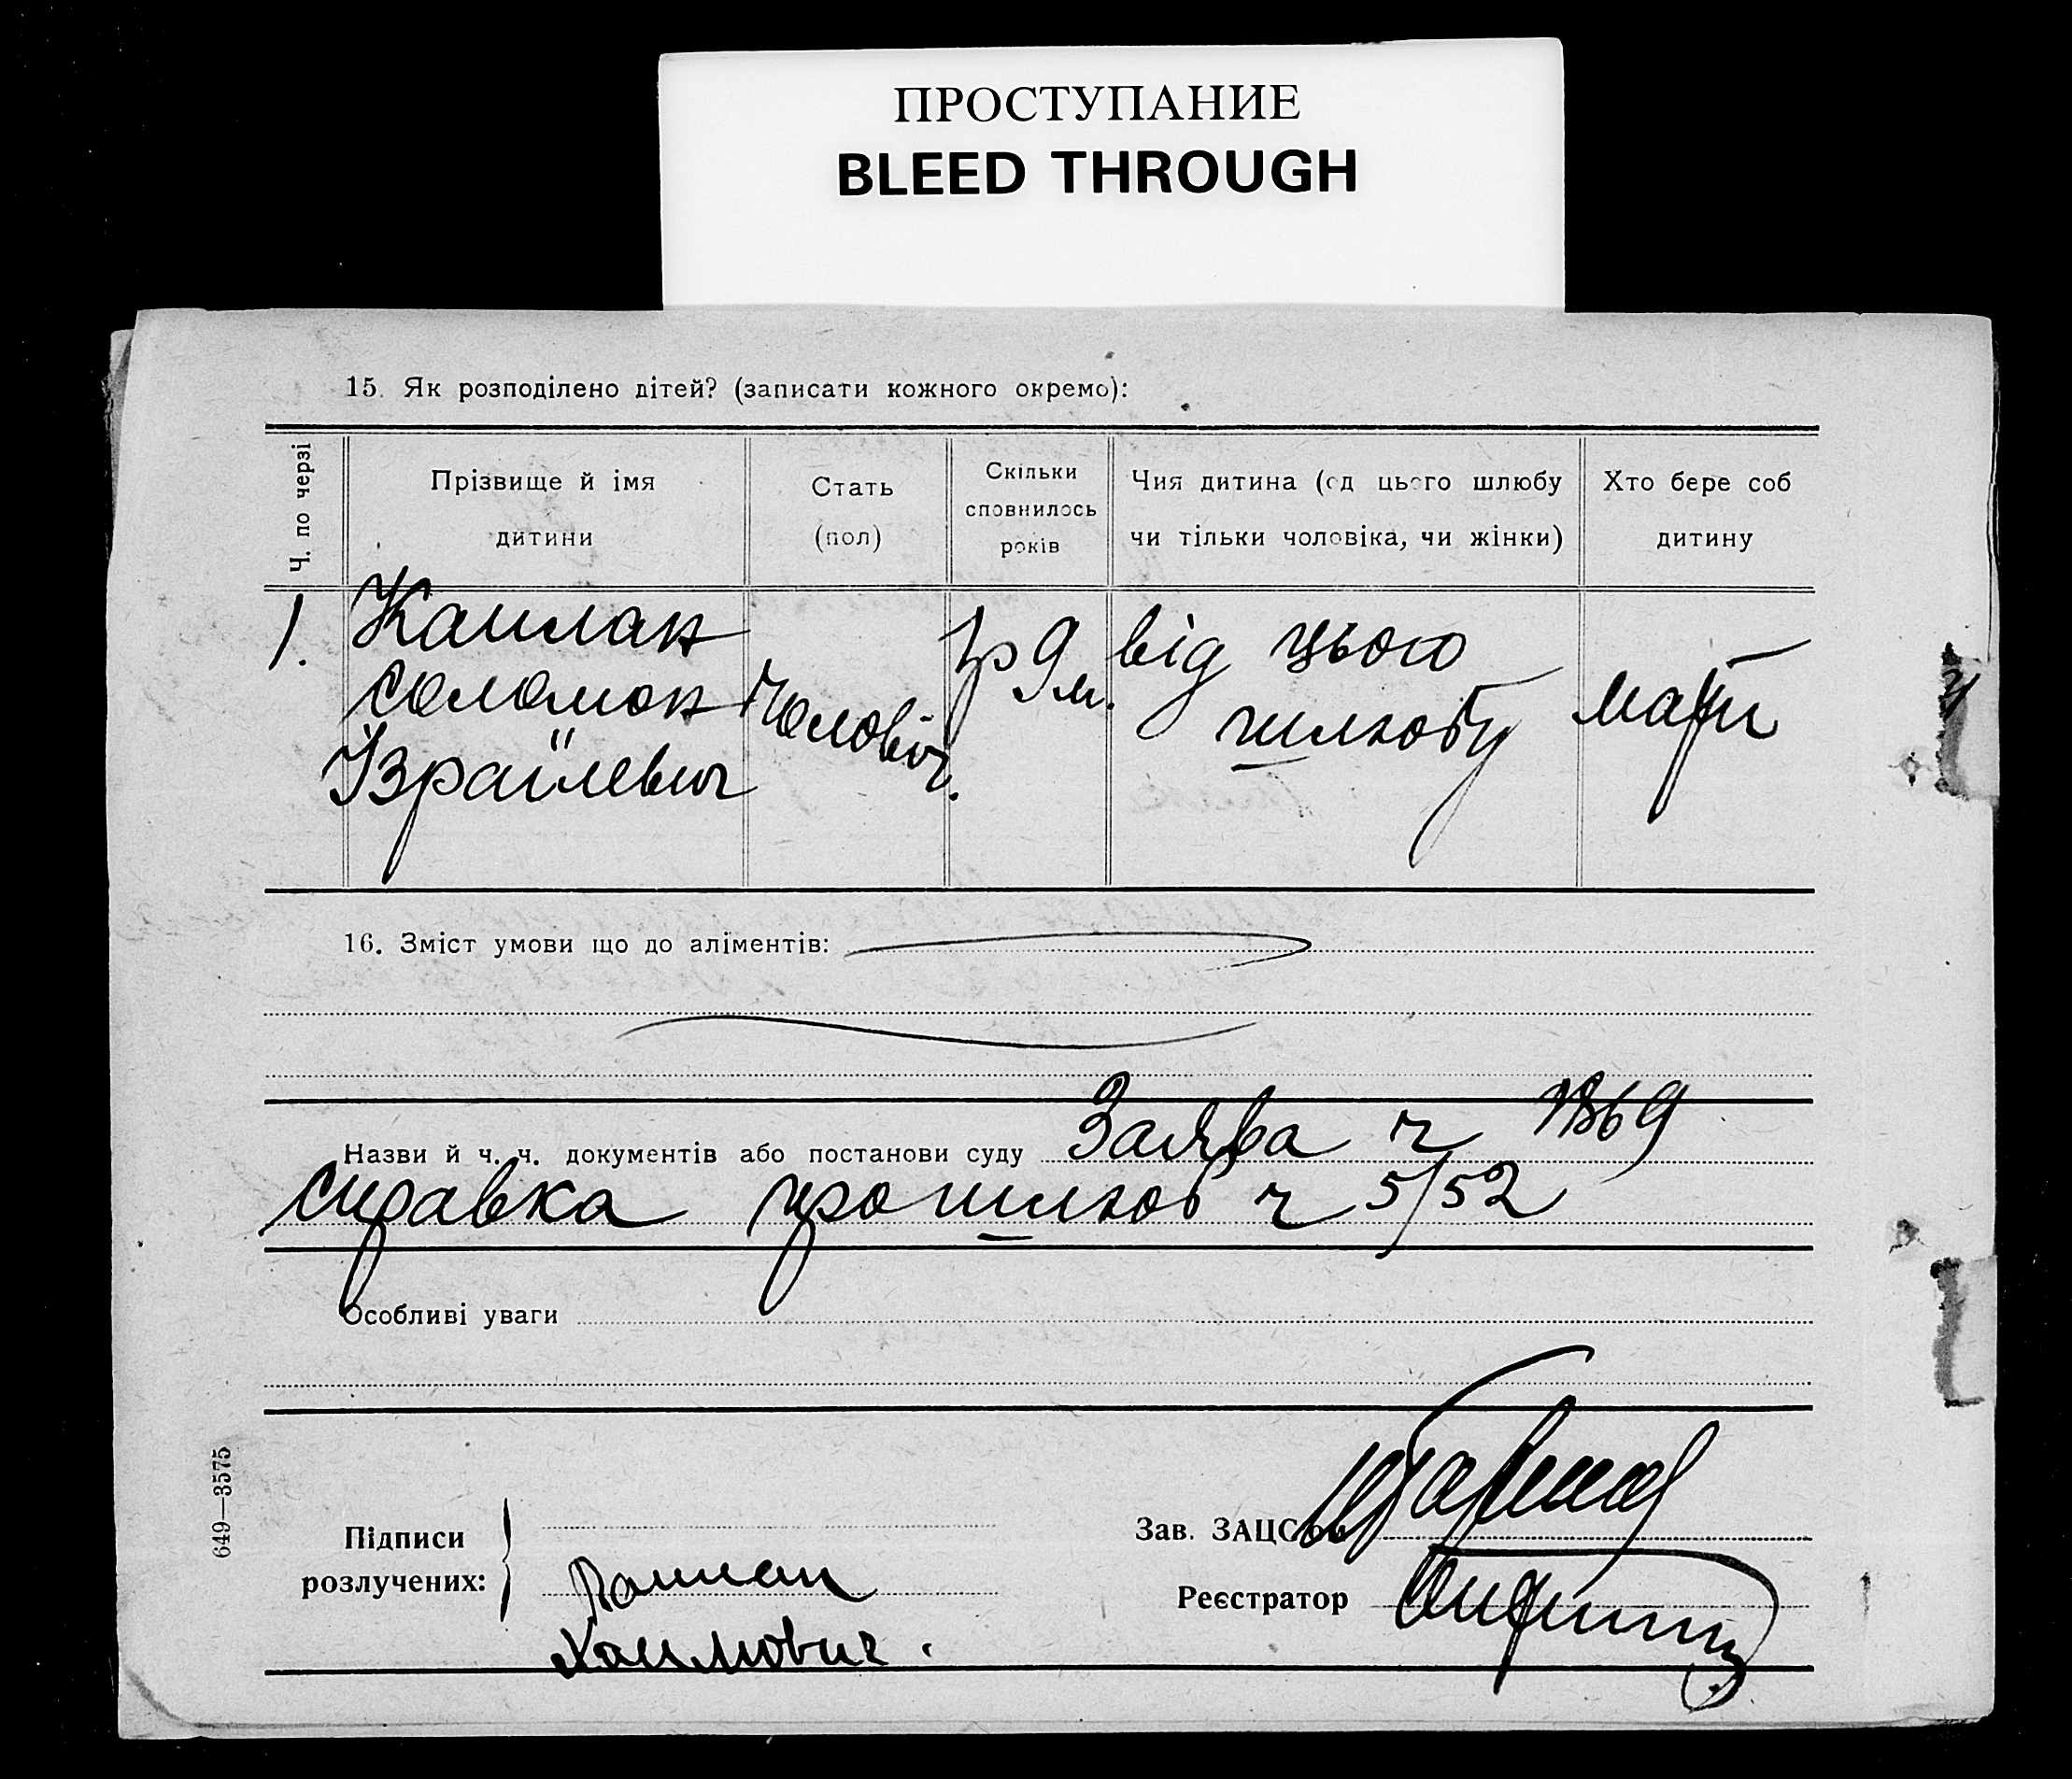 ПРОСТУПАНИЕ
BLEED THROUGH
15. Як розподілено дітей? (записати кожного окремо):
Ч. по черзі
Прізвище й імя
дитини
Стать
(пол)
Скільки
сповнилось
років
Чия дитина (од цього шлюбу
чи тільки чоловіка, чи жінки)
Хто бере соб
дитину
1.
Каплан
Соломон
Ізраїлевич
Чоловіч.
1р 9 м.
від цього
шлюбу
мати
16. Зміст умови що до аліментів:
Назви й ч. ч. документів або постанови суду Заява ч 1869
справка про шлюб ч 5/52
Особливі уваги
649—3575
Підписи
розлучених:
Каплан
Хаимович.
Зав. ЗАЦС'ом
Реєстратор